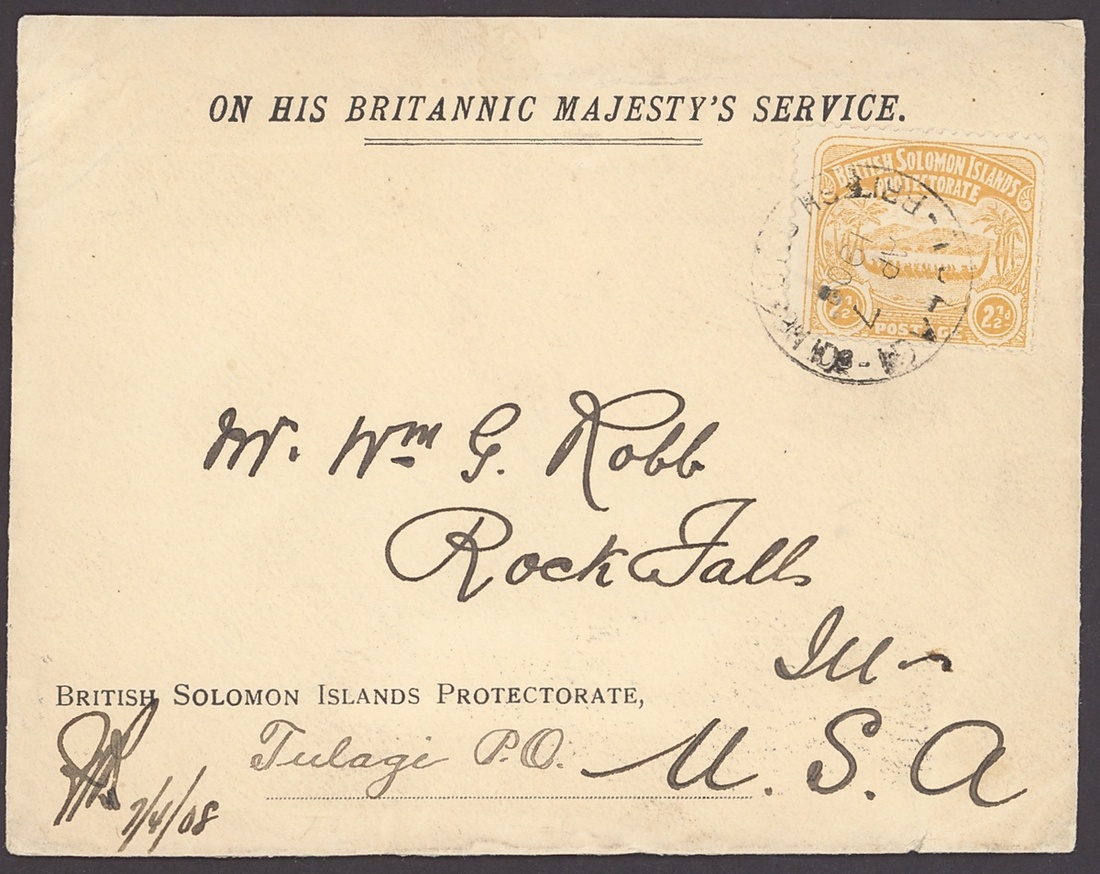 ON HIS BRITANNIC MAJESTY'S SERVICE.
BRITISH SOLOMON ISLANDS
PROTECTORATE
2½d 2½d
POSTAGE
7 AP 1908
Mr. Wm G. Robb
Rock Falls
Ill
BRITISH SOLOMON ISLANDS PROTECTORATE,
Tulagi P.O. U. S. A
7/4/08